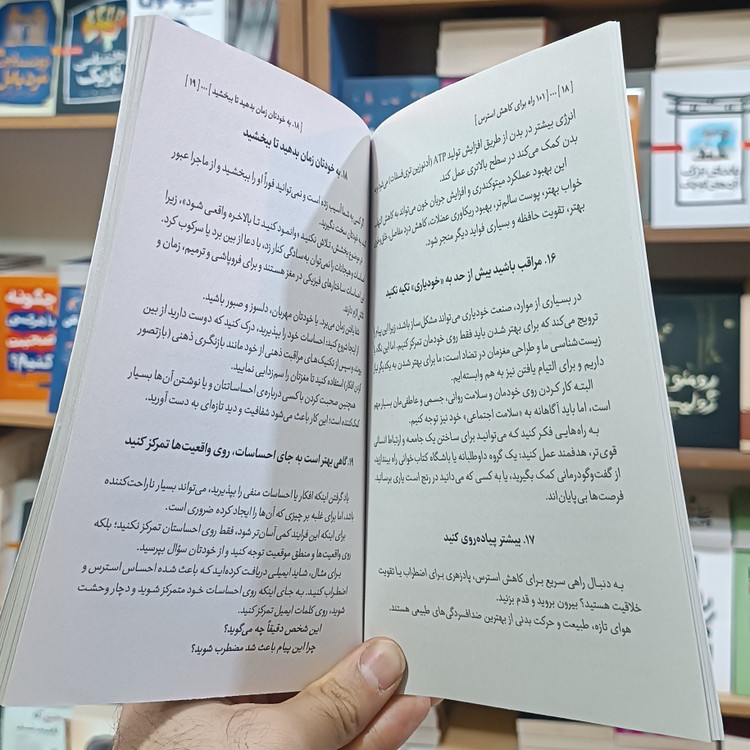 [ ۱۸ ] ... [ ۱۰۱ راه برای کاهش استرس ]
انرژی بیشتر در بدن از طریق افزایش تولید ATP (آدنوزین تری‌فسفات) می‌شود و به
بدن کمک می‌کند در سطح بالاتری عمل کند.
این بهبود عملکرد میتوکندری و افزایش جریان خون می‌تواند به کاهش التهاب،
خواب بهتر، پوست سالم‌تر، بهبود ریکاوری عضلات، کاهش درد مفاصل، خلق‌وخوی
بهتر، تقویت حافظه و بسیاری فواید دیگر منجر شود.
۱۶. مراقب باشید بیش از حد به «خودیاری» تکیه نکنید
در بسیاری از موارد، صنعت خودیاری می‌تواند مشکل‌ساز باشد، زیرا این پیام را
ترویج می‌کند که برای بهتر شدن باید فقط روی خودمان تمرکز کنیم. اما این نگاه با
زیست‌شناسی ما و طراحی مغزمان در تضاد است: ما برای بهتر شدن به یکدیگر نیاز
داریم و برای التیام یافتن نیز به هم وابسته‌ایم.
البته کار کردن روی خودمان و سلامت روانی، جسمی و عاطفی‌مان بسیار مهم
است، اما باید آگاهانه به «سلامت اجتماعی» خود نیز توجه کنیم.
به راه‌هایی فکر کنید که می‌توانید برای ساختن یک جامعه و ارتباط انسانی
قوی‌تر، هدفمند عمل کنید: یک گروه داوطلبانه یا باشگاه کتاب‌خوانی راه بیندازید،
از گفت‌وگودرمانی کمک بگیرید، یا به کسی که می‌دانید در رنج است یاری برسانید.
فرصت‌ها بی‌پایان‌اند.
۱۷. بیشتر پیاده‌روی کنید
به دنبال راهی سریع برای کاهش استرس، پادزهری برای اضطراب یا تقویت
خلاقیت هستید؟ بیرون بروید و قدم بزنید.
هوای تازه، طبیعت و حرکت بدنی از بهترین ضدافسردگی‌های طبیعی هستند.
۱۸. به خودتان زمان بدهید تا ببخشید ] ... [ ۱۹ ]
۱۸. به خودتان زمان بدهید تا ببخشید
کسی به شما آسیب زده است و نمی‌توانید فوراً او را ببخشید و از ماجرا عبور
به خودتان سخت نگیرید.
در موضوع بخشش، تلاش نکنید «وانمود کنید تا بالاخره واقعی شود»، زیرا
و هیجانات را نمی‌توان به‌سادگی کنار زد، با دعا از بین برد یا سرکوب کرد.
ساختارهای فیزیکی در مغز هستند و برای فروپاشی و ترمیم، زمان و
لازم دارند.
شفا یافتن زمان می‌برد. با خودتان مهربان، دلسوز و صبور باشید.
از اینجا شروع کنید: احساسات خود را بپذیرید، درک کنید که دوست دارید از بین
بروند و سپس از تکنیک‌های مراقبت ذهنی از خود مانند بازنگری ذهنی (بازتصور
کردن افکار) استفاده کنید تا مغزتان را سم‌زدایی نمایید.
همچنین صحبت کردن با کسی درباره‌ی احساساتتان و یا نوشتن آن‌ها بسیار
کمک‌کننده است؛ این کار باعث می‌شود شفافیت و دید تازه‌ای به دست آورید.
۱۹. گاهی بهتر است به جای احساسات، روی واقعیت‌ها تمرکز کنید
یاد گرفتن اینکه افکار یا احساسات منفی را بپذیرید، می‌تواند بسیار ناراحت‌کننده
باشد، اما برای غلبه بر چیزی که آن‌ها را ایجاد کرده ضروری است.
برای اینکه این فرایند کمی آسان‌تر شود، فقط روی احساستان تمرکز نکنید؛ بلکه
روی واقعیت‌ها و منطق موقعیت توجه کنید و از خودتان سؤال بپرسید.
برای مثال، شاید ایمیلی دریافت کرده‌اید که باعث شده احساس استرس و
اضطراب کنید. به جای اینکه روی احساسات خود متمرکز شوید و دچار وحشت
شوید، روی کلمات ایمیل تمرکز کنید.
این شخص دقیقاً چه می‌گوید؟
چرا این پیام باعث شد مضطرب شوید؟
چگونه
با هر کسی
صحبت
کنیم؟